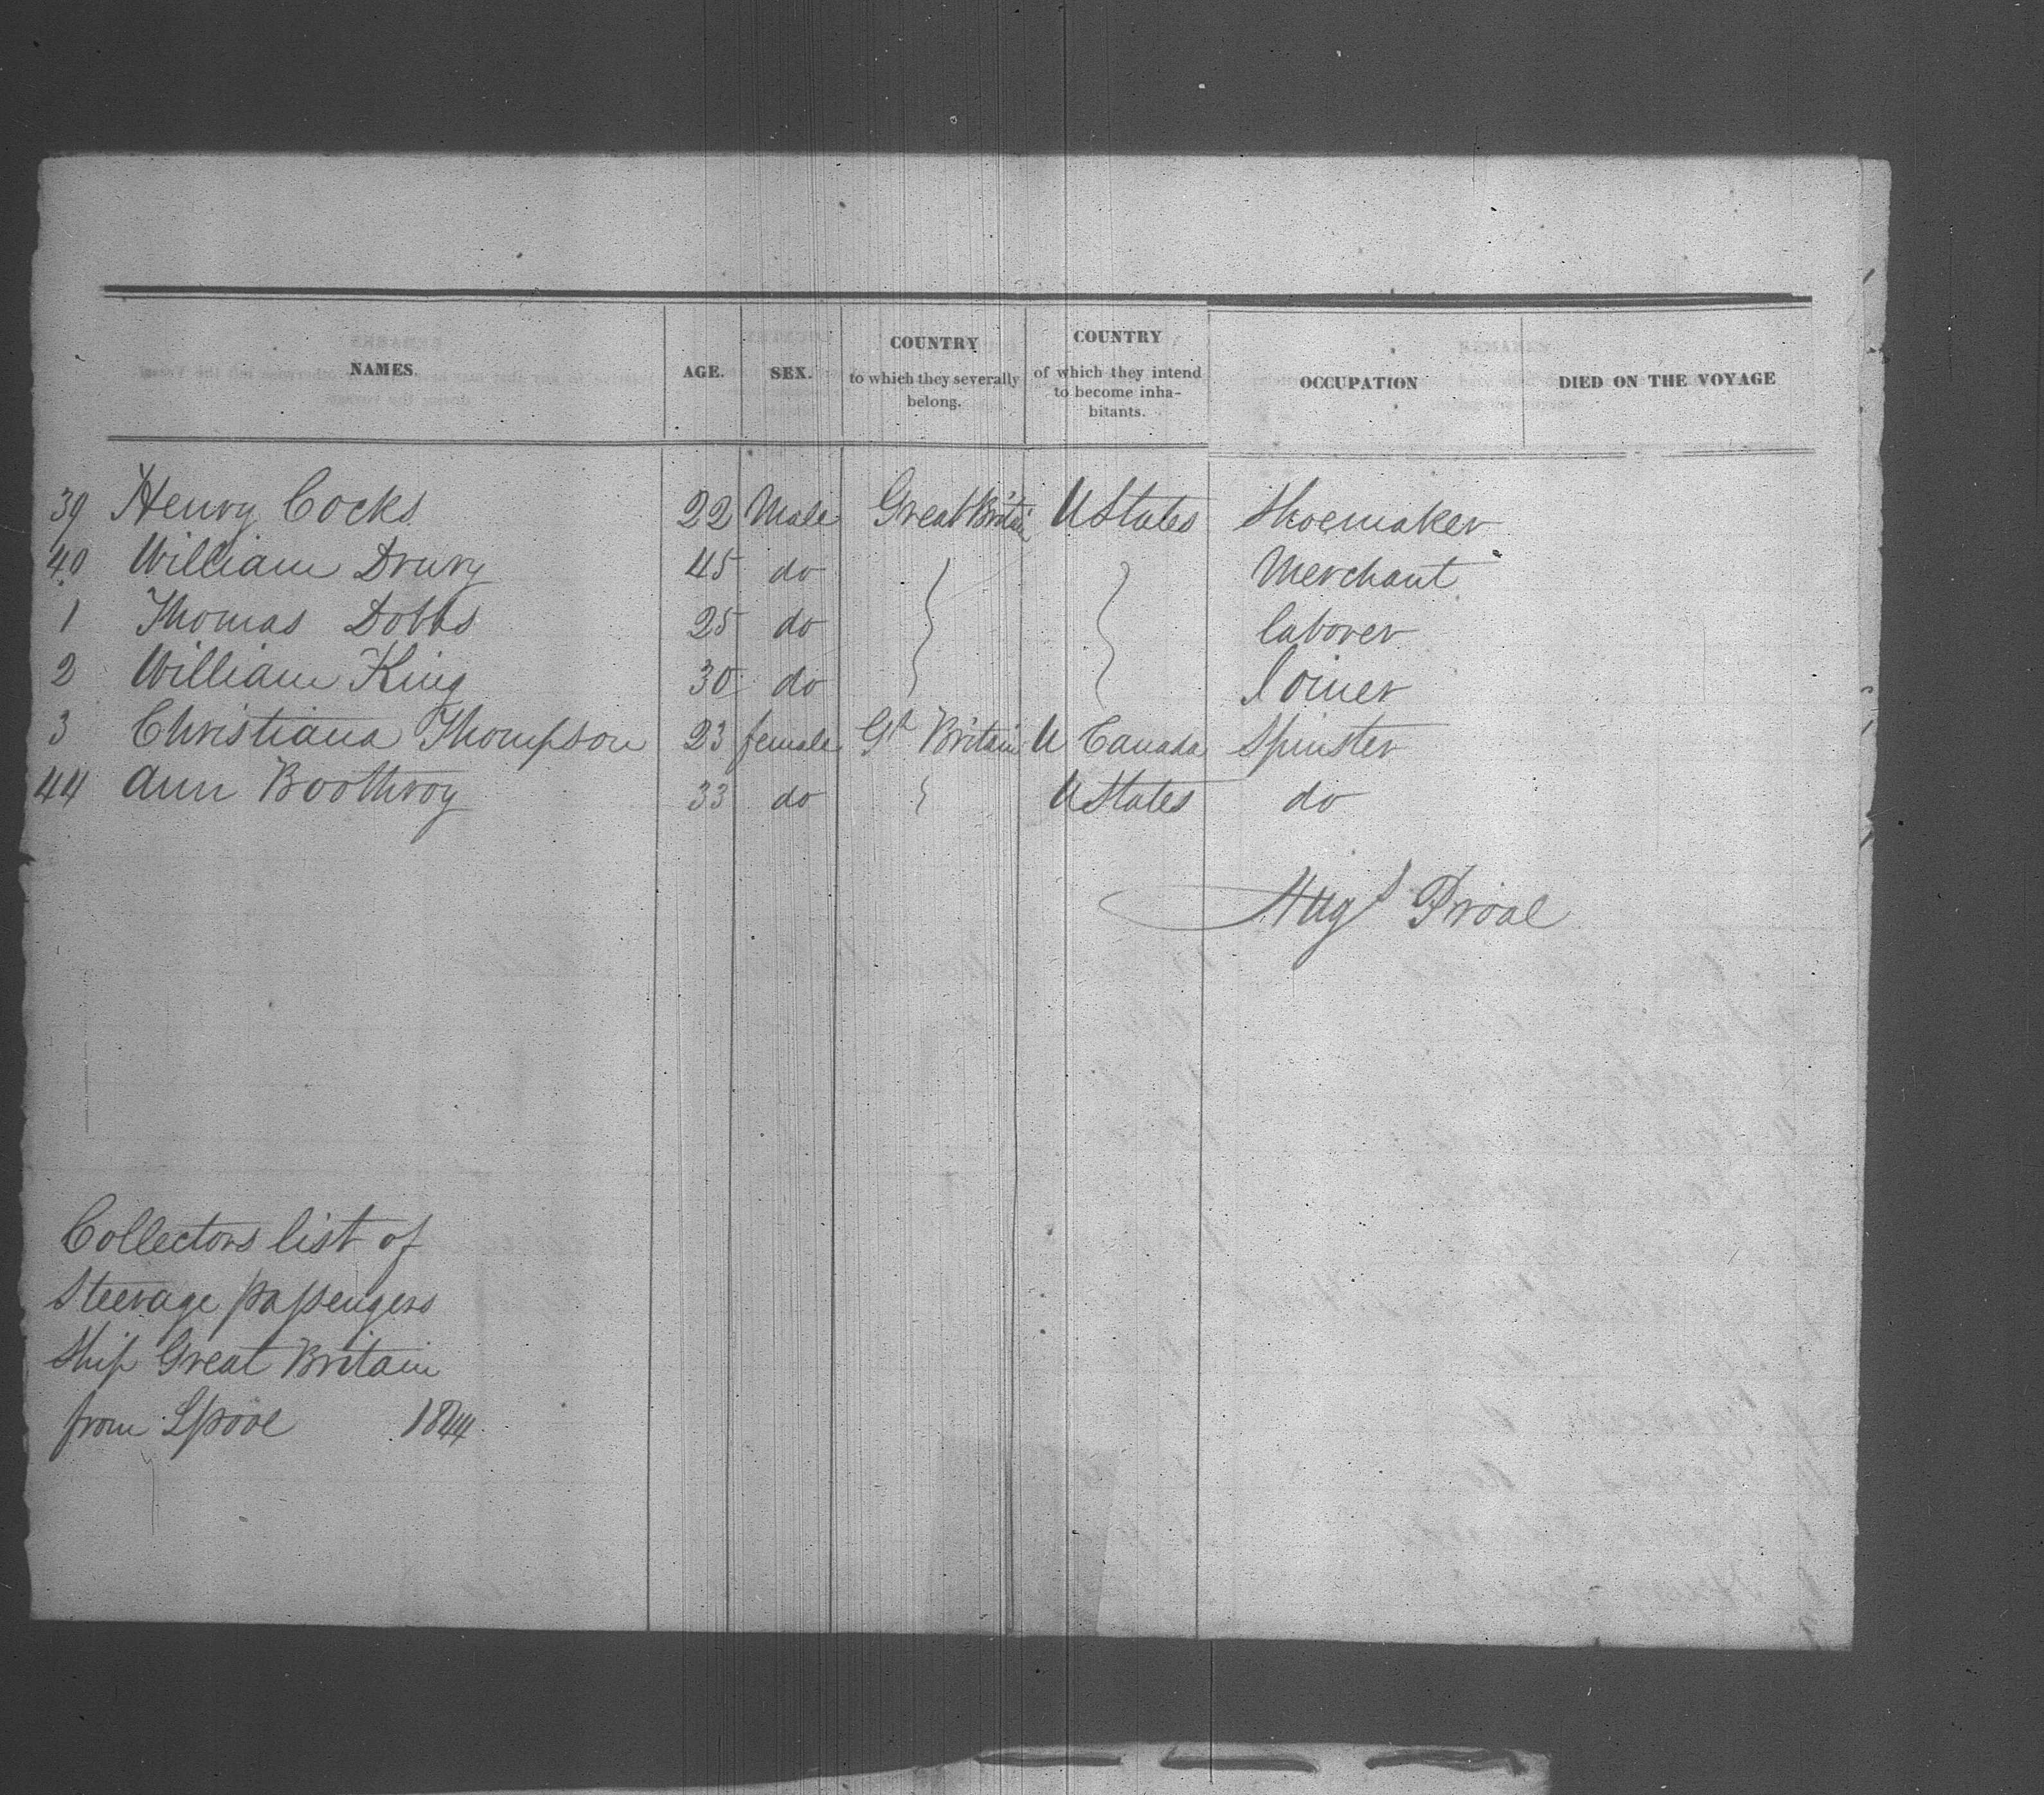 NAMES. AGE. SEX. COUNTRY to which they severally belong. COUNTRY of which they intend to become inhabitants. OCCUPATION DIED ON THE VOYAGE
39 Henry Cocks 22 Male Great Britain U States Shoemaker
40 William Drury 45 do Merchant
1 Thomas Dobbs 25 do laborer
2 William King 30 do Joiner
3 Christiana Thompson 23 female Gt Britain U Canada Spinster
44 Ann Boothroy 33 do U States do
Augs Proal
Collectors list of
Steerage passengers
Ship Great Britain
from Lpool 1844